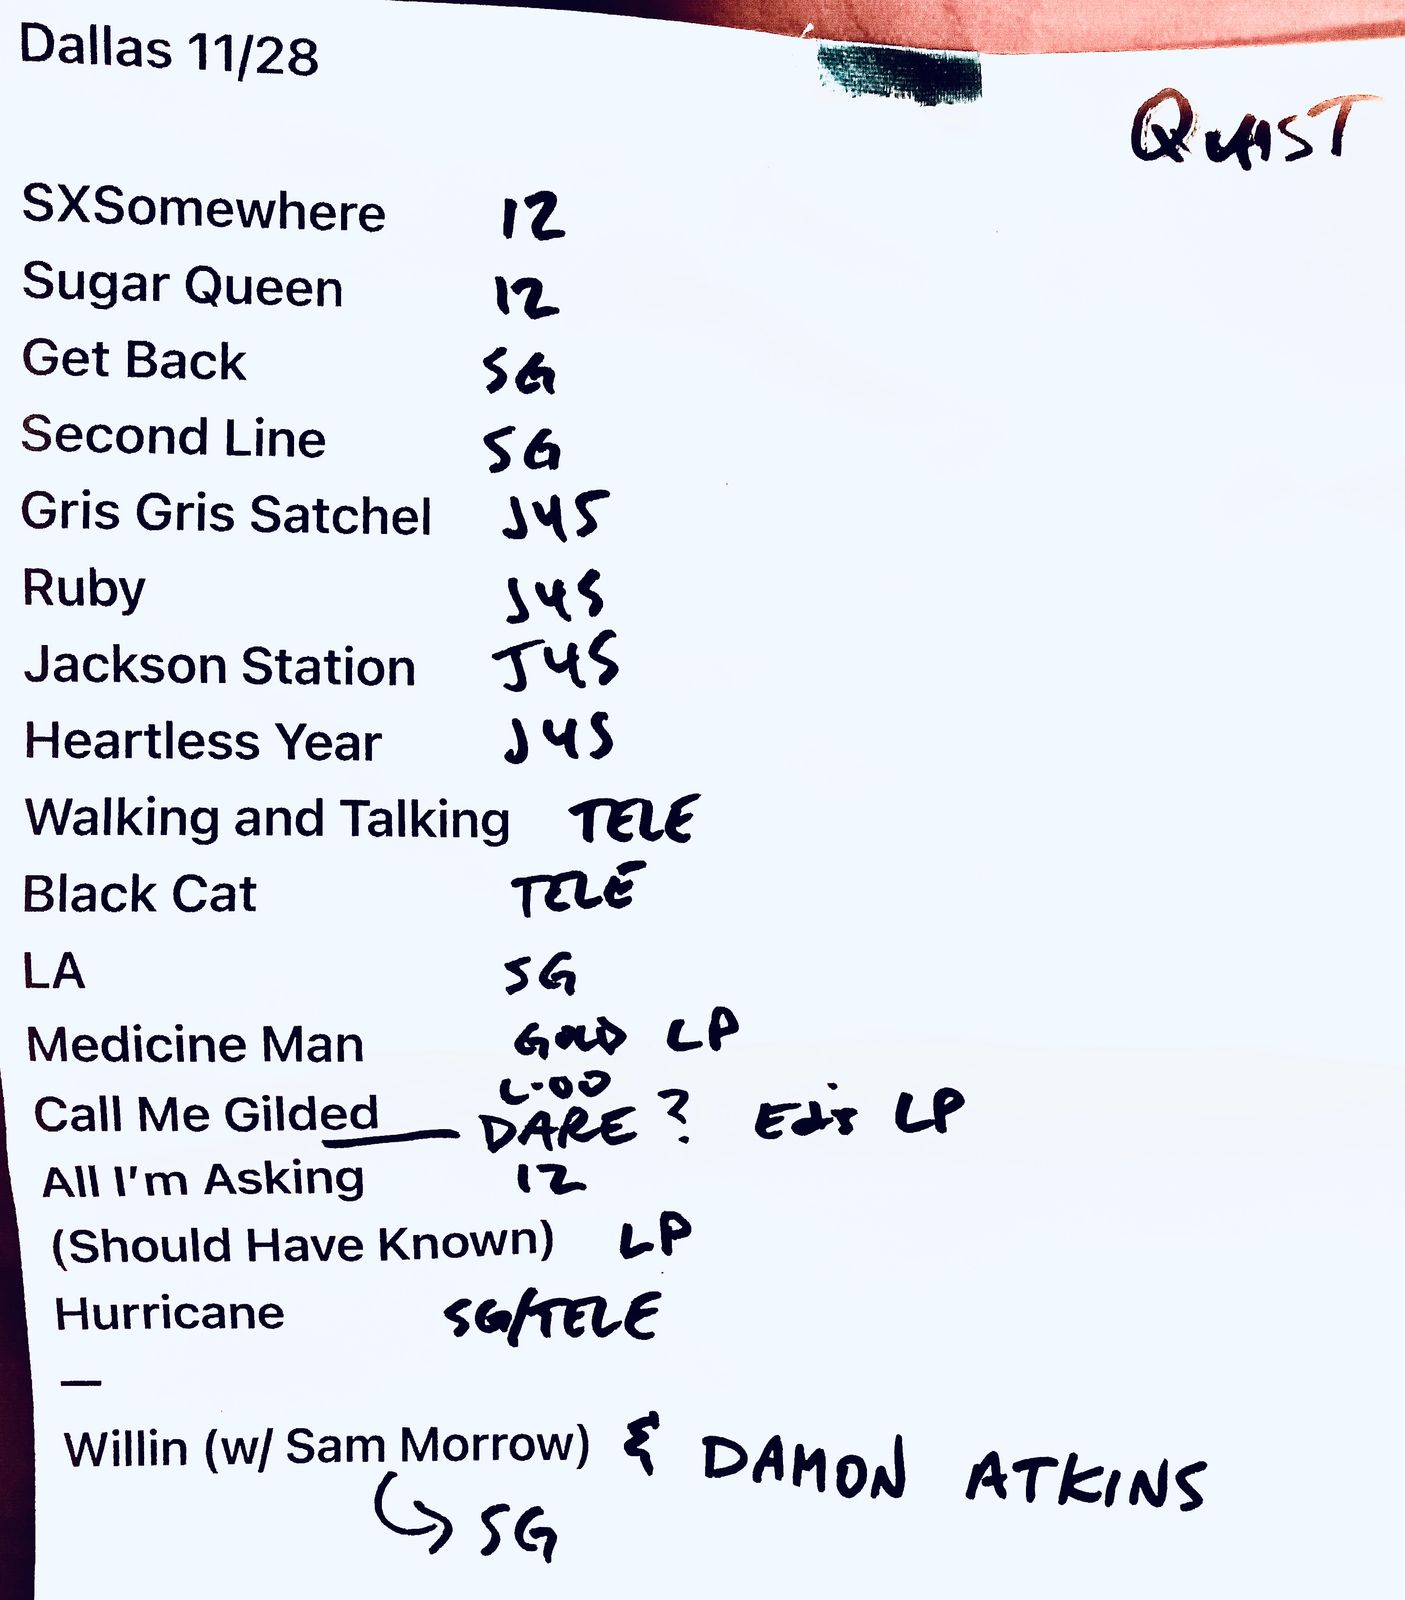 Dallas 11/28
QUIST
SXSomewhere 12
Sugar Queen 12
Get Back SG
Second Line SG
Gris Gris Satchel J45
Ruby J45
Jackson Station J45
Heartless Year J45
Walking and Talking TELE
Black Cat TELE
LA SG
Medicine Man GOLD LP
Call Me Gilded DARE? Ed's LP
All I'm Asking 12
(Should Have Known) LP
Hurricane SG/TELE
—
Willin (w/ Sam Morrow) & DAMON ATKINS
SG